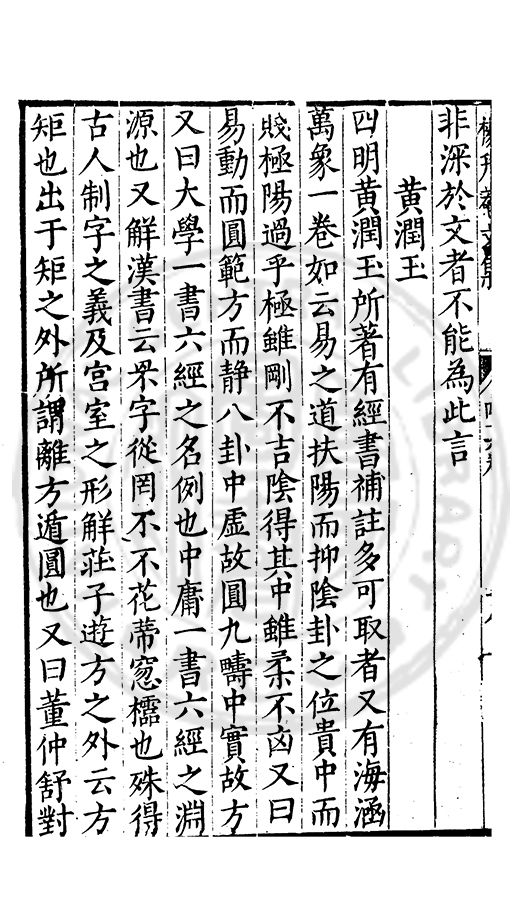 非深於文者不能為此言
黃潤玉
四明黃潤玉所著有經書補註多可取者又有海涵
萬象一卷如云易之道扶陽而抑陰卦之位貴中而
賤極陽過乎極雖剛不吉陰得其中雖柔不凶又曰
易動而圓範方而静八卦中虛故圓九疇中實故方
又曰大學一書六經之名例也中庸一書六經之淵
源也又解漢書云罘字從罔不不花蔕窓櫺也殊得
古人制字之義及宮室之形解莊子遊方之外云方
矩也出于矩之外所謂離方遁圓也又曰董仲舒對